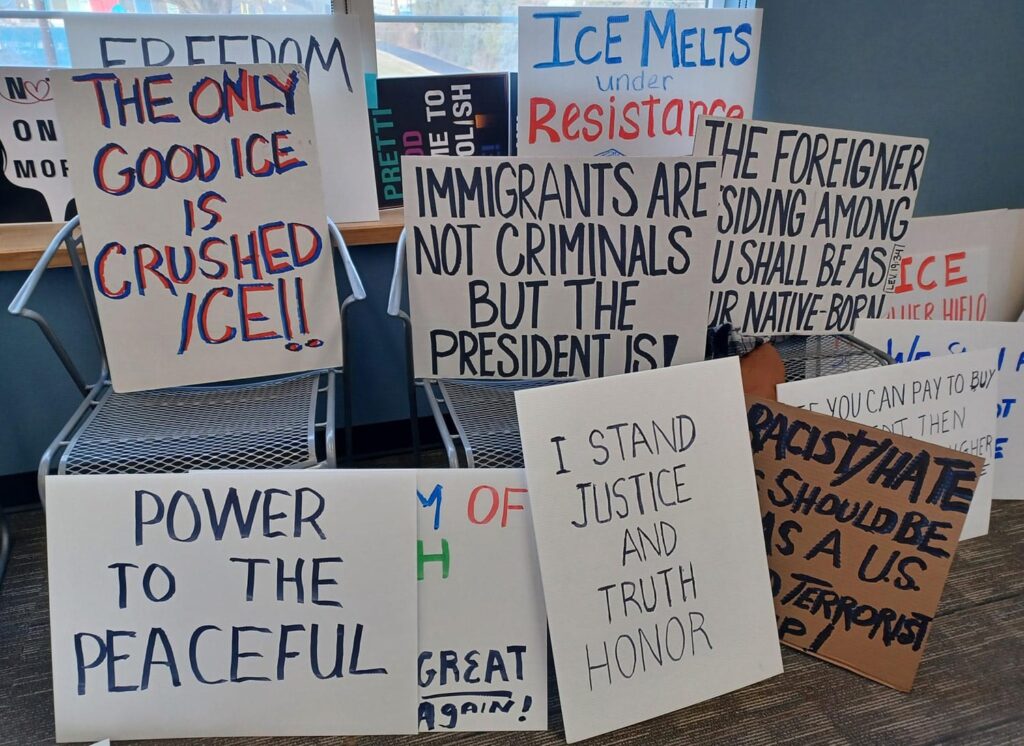 FREEDOM
NO
ON
MOR
THE ONLY
GOOD ICE
IS
CRUSHED
ICE!!
PRETTI
ICE MELTS
under
Resistance
IMMIGRANTS ARE
NOT CRIMINALS
BUT THE
PRESIDENT IS!
THE FOREIGNER
SIDING AMONG
U SHALL BE AS
UR NATIVE-BORN
LEV. 19:34
ICE
HIELO
YOU CAN PAY TO BUY
THEN
POWER
TO THE
PEACEFUL
M OF
H
GREAT
Again!
I STAND
JUSTICE
AND
TRUTH
HONOR
RACIST/HATE
SHOULD BE
AS A U.S.
TERRORIST
P!